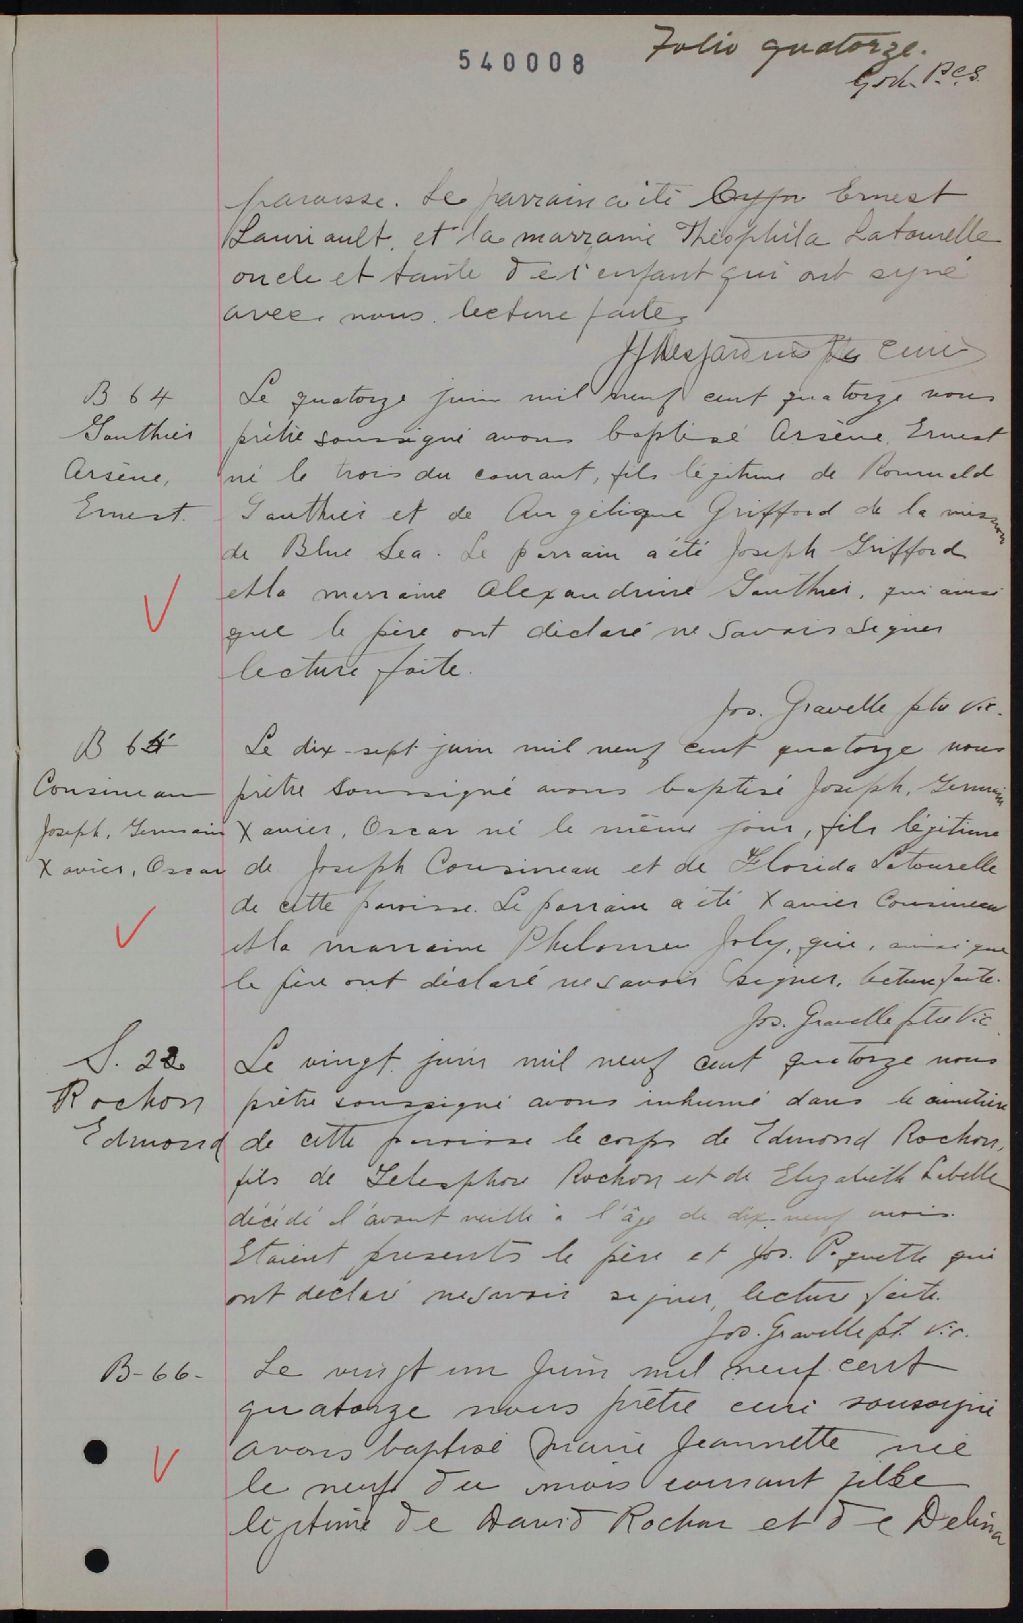 540008
Folio quatorze.
G.d. P.C.S.
paroisse. Le parrain a été Ernest
Lauriault, et la marraine Théophila Latourelle
oncle et tante de l'enfant qui ont signé
avec nous. lecture faite.
JJ Desjardins Ptre curé
B 64
Gauthier
Arsène,
Ernest.
Le quatorze juin mil neuf cent quatorze nous
prêtre soussigné avons baptisé Arsène, Ernest
né le trois du courant, fils légitime de Romuald
Gauthier et de Angélique Grifford de la mission
de Blue Sea. Le parrain a été Joseph Grifford
et la marraine Alexandrine Gauthier, qui ainsi
que le père ont déclaré ne savoir signer
lecture faite.
Jos. Gravelle ptre Vic.
B 65
Cousineau
Joseph, Germain
Xavier, Oscar
Le dix-sept juin mil neuf cent quatorze nous
prêtre soussigné avons baptisé Joseph, Germain
Xavier, Oscar né le même jour, fils légitime
de Joseph Cousineau et de Florida Latourelle
de cette paroisse. Le parrain a été Xavier Cousineau
et la marraine Philomen Joly, qui, ainsi que
le père ont déclaré ne savoir signer. lecture faite.
Jos. Gravelle ptre Vic
S. 22
Rochon
Edmond
Le vingt juin mil neuf cent quatorze nous
prêtre soussigné avons inhumé dans le cimetière
de cette paroisse le corps de Edmond Rochon,
fils de Telesphore Rochon et de Elizabeth Labelle
décédé l'avant veille à l'âge de dix-neuf mois.
Etaient presents le père et Jos. Paquette qui
ont déclaré ne savoir signer, lecture faite.
Jos. Gravelle pt. Vic.
B-66-
Le vingt un Juin mil neuf cent
quatorze nous prêtre curé soussigné
avons baptisé Marie Jeannette née
le neuf du mois courant fille
légitime de David Rochon et de Delina